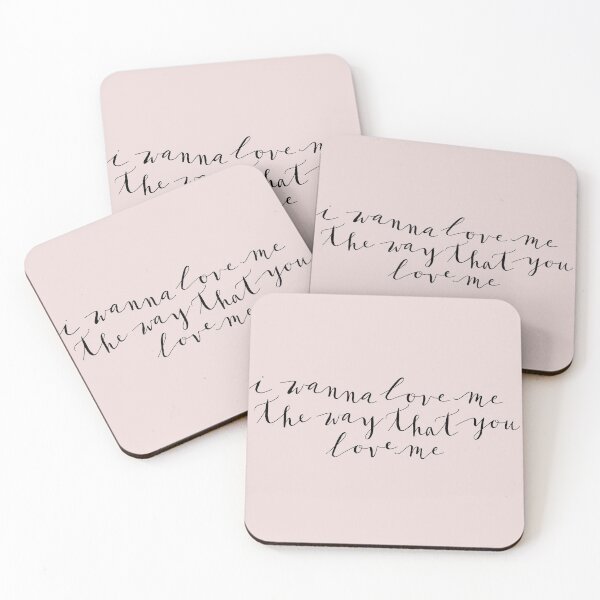 i wanna love m
the wa hat
me
i wanna love me
the way that you
love me
i wanna love me
the way that you
love me
i wanna love me
the way that you
love me